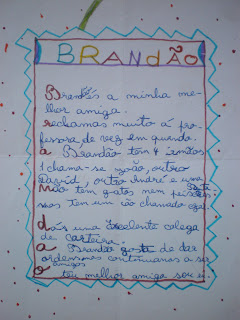 BRANDÃO
Brandês a minha me-
lhor amiga.
Rechamas muito á pro-
fessora de vez em quando.
Brandão tem 4 irmãos
1 chama-se João, outro
David, outro André e uma
Não tem gatos nem peixes
mas tem um cão chamado
dás uma Excelente colega
de carteira.
a Brandão gosta de dar
ordens, mas continuamos a ser
amigas
o teu melhor amiga sou eu